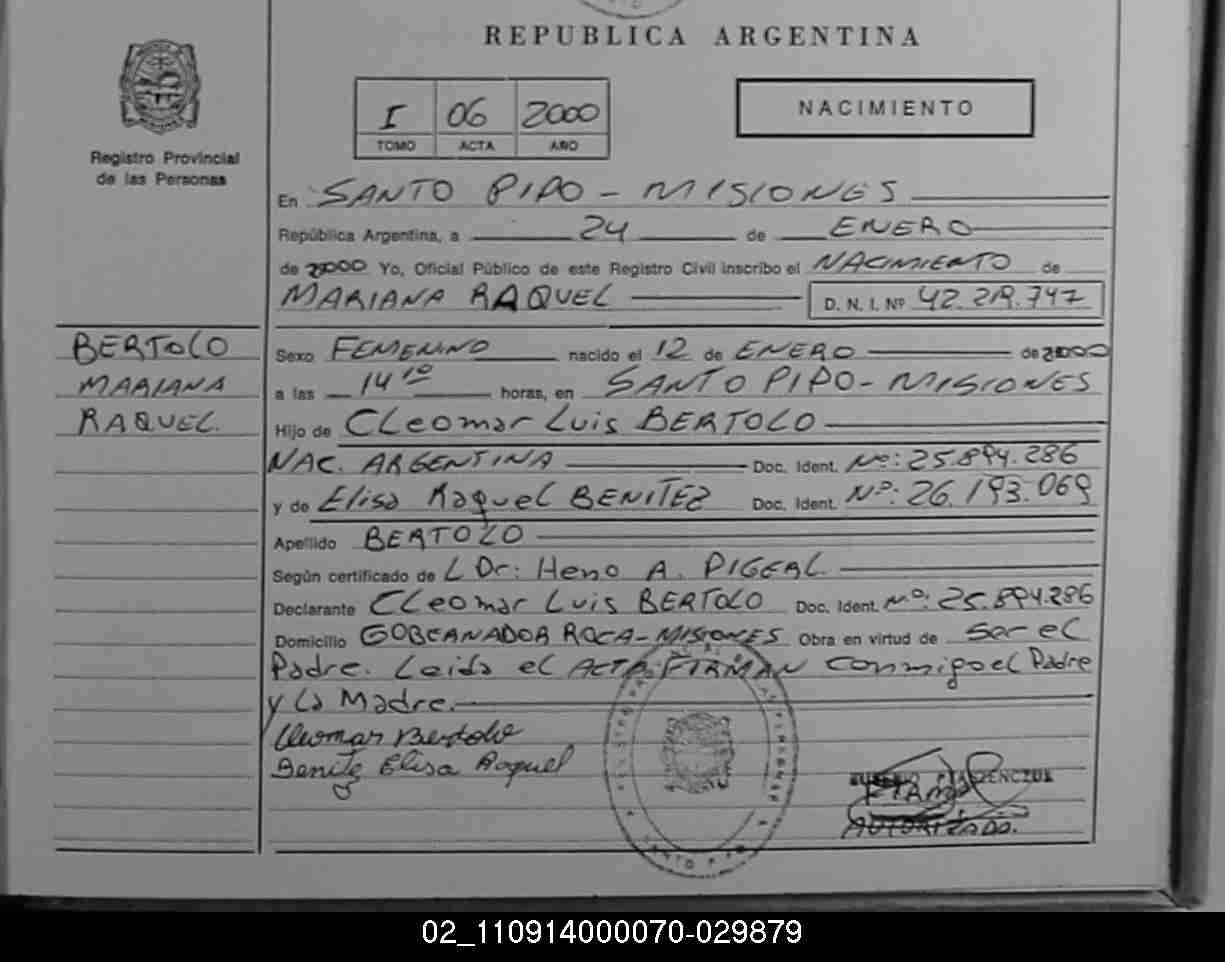 REPUBLICA ARGENTINA
I 06 2000
TOMO ACTA AÑO
NACIMIENTO
Registro Provincial
de las Personas
En SANTO PIPO - MISIONES
República Argentina, a 24 de ENERO
de 2000 Yo, Oficial Público de este Registro Civil inscribo el NACIMIENTO de
MARIANA RAQUEL D. N. I. Nº 42.219.747
BERTOLO
MARIANA
RAQUEL.
Sexo FEMENINO nacido el 12 de ENERO de 2000
a las 14 10 horas, en SANTO PIPO - MISIONES
Hijo de CLeomar Luis BERTOLO
NAC. ARGENTINA Doc. Ident. Nº: 25.894.286
y de Elisa Raquel BENITEZ Doc. Ident. Nº: 26.193.069
Apellido BERTOLO
Según certificado de L Dr: Heno A. PIGERL
Declarante CLeomar Luis BERTOLO Doc. Ident. Nº: 25.894.286
Domicilio GOBERNADOR ROCA - MISIONES Obra en virtud de ser el
Padre. Leida el ACTA FIRMAN conmigo el Padre
y La Madre.
Cleomar Bertolo
Benitez Elisa Raquel
FIRMA
AUTORIZADO.
SANTO PIPO
02_110914000070-029879